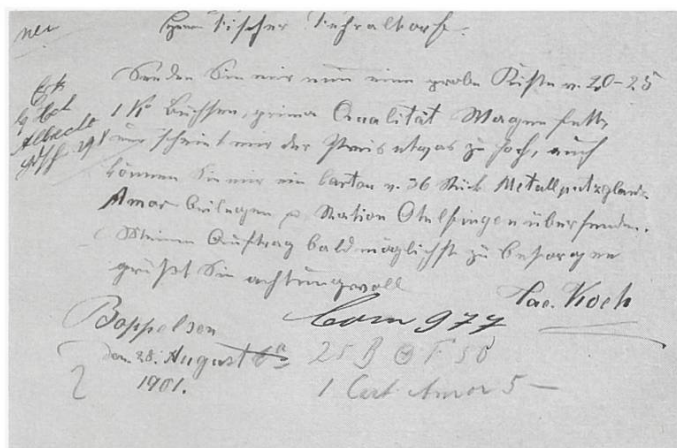 neu
Herrn Fischer Fehraltorf.
Senden Sie mir nun eine probe Kiste v. 20-25
1 Ko Büchsen, prima Qualität Wagenfett,
nur scheint mir der Preis etwas zu hoch, auch
können Sie mir ein Carton v. 36 Stück Metallputzglanz
Amor beilegen p. Station Otelfingen übersenden.
Meinen Auftrag bald möglichst zu besorgen
grüßt Sie achtungsvoll
Jac. Koch
Boppelsen
den 28. August
1901.
Com 977
25 B F 50
1 Cart Amor 5 —